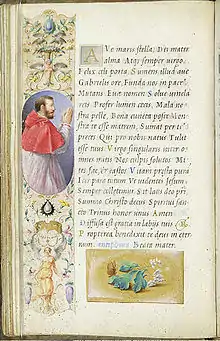 Ave maris stella, Dei mater
alma Atq; semper virgo,
Felix cæli porta. Sumens illud aue
Gabrielis ore, Funda nos in pace
Mutans Euæ nomen Solue vincla
reis Profer lumen cæcis, Mala no
stra pelle, Bona cuncta posce Mon
stra te esse matrem, Sumat per te
preces Qui pro nobis natus Tulit
esse tuus. Virgo singularis inter o
mnes mitis Nos culpis solutos Mi
tes fac, et castos Vitam præsta pura
Iter para tutum Vt videntes Jesum,
Semper collætemur. Sit laus deo pri,
Summo Christo decus Spiritui san
cto Trinus honor unus Amen
Diffusa est gratia in labijs tuis
Propterea benedixit te deus in æter
num. Beata mater.